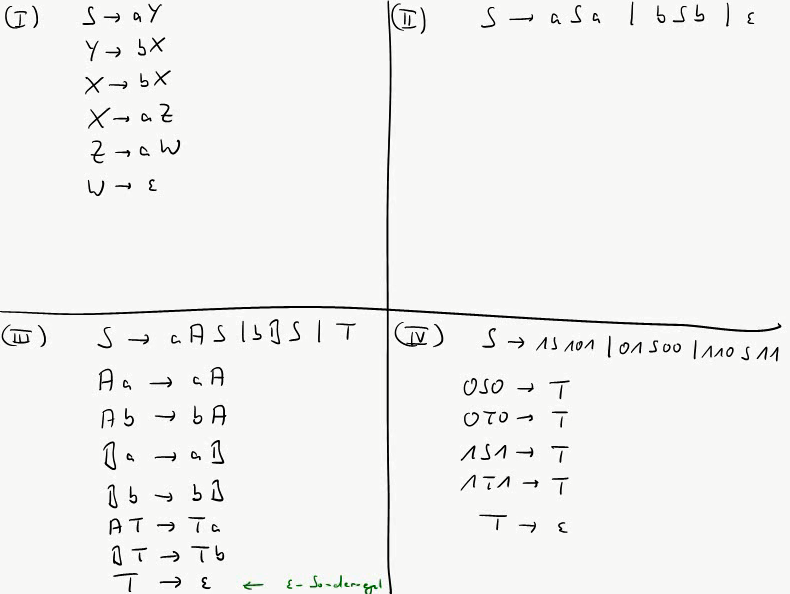 (I) S → aY
Y → bX
X → bX
X → aZ
Z → aW
W → ε
(II) S → aSa | bSb | ε
(III) S → aAS | bBS | T
Aa → aA
Ab → bA
Ba → aB
Bb → bB
AT → Ta
BT → Tb
T → ε ← ε-Sonderregel
(IV) S → 1S101 | 01S00 | 110S11
0S0 → T
0T0 → T
1S1 → T
1T1 → T
T → ε